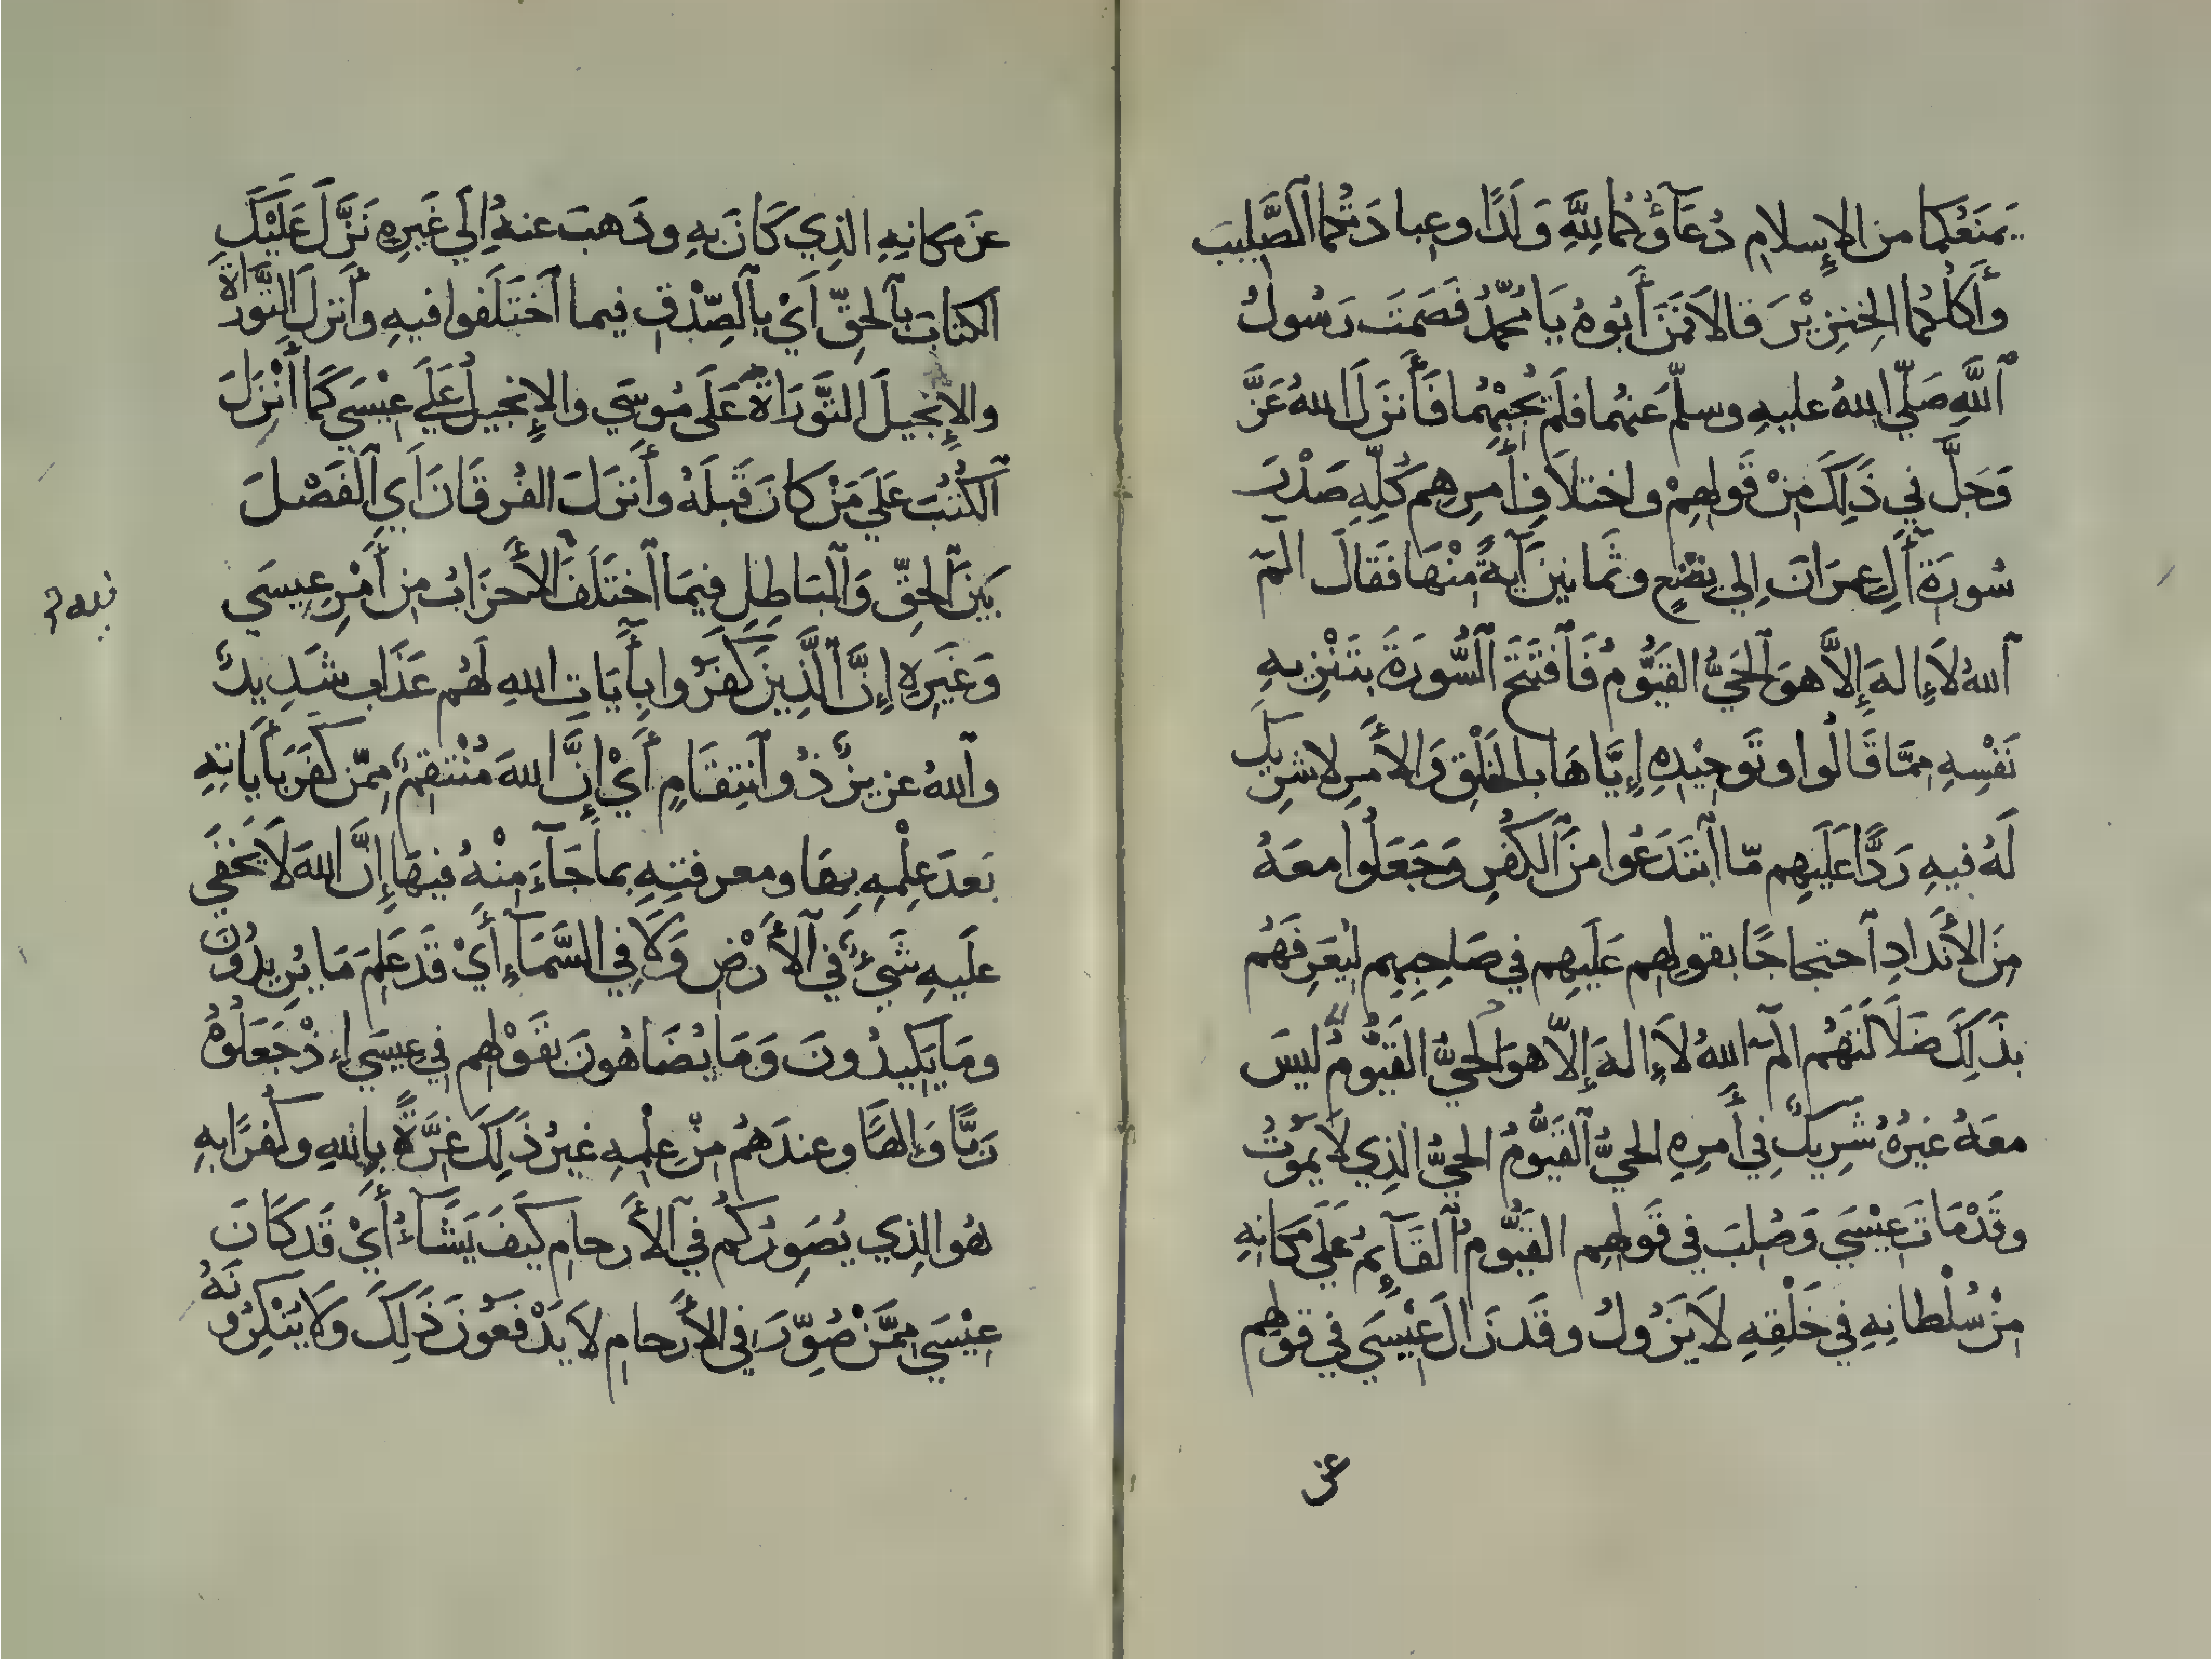 يَمنَعُكما من الإِسلامِ دُعَآؤُكما لِلَّهِ وَلَدًا وعبادَتكما ٱلصَّلِيبَ
وأَكلُكُما الخِنزِيْرَ قالا فَمَنْ أَبُوهُ يَا مُحمّدُ فَصَمَتَ رَسُولُ
ٱللَّهِ صَلّي اللهُ عليهِ وسلّم عَنهُما فلَم يُجِبْهُما فَأَنزَلَ اللهُ عَزَّ
وَجَلَّ في ذَلِكَ مِنْ قَولهِمْ واختلاَفِ أَمرِهِم كُلِّهِ صَدْرَ
سُورَةِ آلِ عِمرَانَ إِلي بِضْعٍ وثَمانينَ آيةً مِنْهَا فَقَالَ الٓمٓ
ٱللهُ لاَ إِلهَ إِلاَّ هوَ ٱلحَيُّ القَيُّومُ فَٱفتَتَحَ ٱلسُّورَةَ بتَنْزِيهِ
نَفْسِهِ مِمَّا قَالُوا وتَوحِيْدِهِ إِيَّاهَا بالخَلْقِ وَالأَمرِ لا شَرِيكَ
لَهُ فيهِ رَدًّا عَلَيهِم مّا ٱبتَدَعُوا مِنَ ٱلكُفرِ وَجَعَلُوا معَهُ
مِنَ الأَندادِ ٱحتجاجًا بقولهِم عَلَيهِم في صَاحِبِهِم لِيُعَرِفَهُم
بذَلِكَ ضَلاَلَتَهُم الٓمٓ اللهُ لاَ إِلهَ إِلاّ هوَ الحَيُّ القَيُّومُ لَيسَ
معَهُ غيرُهُ شَرِيكٌ فِي أَمرِهِ الحَيُّ ٱلقَيُّومُ الحيُّ الذِي لاَ يَمُوْتُ
وقَدْ مَاتَ عِيْسَي وَصُلِبَ في قَولهِم القَيُّومُ ٱلقَآئِمُ عَلَي مَكَانِهِ
مِنْ سُلْطانِهِ فِي خَلْقِهِ لاَ يَزُولُ وقَد زَالَ عِيْسَي في قولهِم
عن
عَن مكانِهِ الذِي كَانَ بِهِ وذَهبَ عنهُ إِلَي غَيرِهِ نَزَّلَ عَلَيْكَ
الكتابَ بٱلحقِّ أَيْ بٱلصِّدْقِ فيما ٱختَلَفوا فيهِ وأَنزلَ التَّورَاةَ
والإِنجيلَ التَّورَاةَ عَلَى مُوسَي والإِنجيلَ عَلَي عِيْسَي كَمَا أَنْزَلَ
ٱلكُتُبَ عَلَي مَنْ كانَ قَبلَهُ وأَنزَلَ الفُرقَانَ أَي ٱلفَصْلَ
بَينَ ٱلحقِّ وَٱلبَاطِلِ فِيمَا ٱختَلَفَ ٱلأَحزَابُ مِن أَمْرِ عِيسَي
وَغَيرِهِ إِنَّ ٱلَّذِينَ كَفَرُوا بِأَيَاتِ اللهِ لَهُم عَذَابٌ شَدِيدٌ
وٱللهُ عزيزٌ ذُو ٱنتِقَامٍ أَيْ إِنَّ اللهَ مُنْتَقِمٌ مِمّن كفَرَ بأَيَاتِهِ
بَعدَ عِلْمِهِ بِهَا ومعرفتِهِ بما جَآءَ مِنْهُ فيهَا إِنَّ اللهَ لاَ يَخفَي
علَيهِ شَيْءٌ فِي ٱلأَرْضِ وَلاَ فِي السَّمَآءِ أَيْ قَد عَلِمَ مَا يُرِيدُونَ
ومَا يَكِيدُونَ وَمَا يُضَاهُونَ بقَوْلهِم فِي عِيسَي إِذْ جَعَلُوهُ
رَبًّا وَإِلهًا وعندَهُم مِنْ عِلْمِهِ غيرُ ذَلِكَ غِرَّةً بِاللهِ وكُفرًا بهِ
هُو الذِي يُصَوِرُكُم فِي ٱلأَرحامِ كَيفَ يَشَآءُ أَيْ قَد كَانَ
عِيْسَي مِمَّنْ صُوِّرَ فِي الأَرحامِ لاَ يَدْفَعُونَ ذَلِكَ وَلاَ يُنْكِرُونَهُ